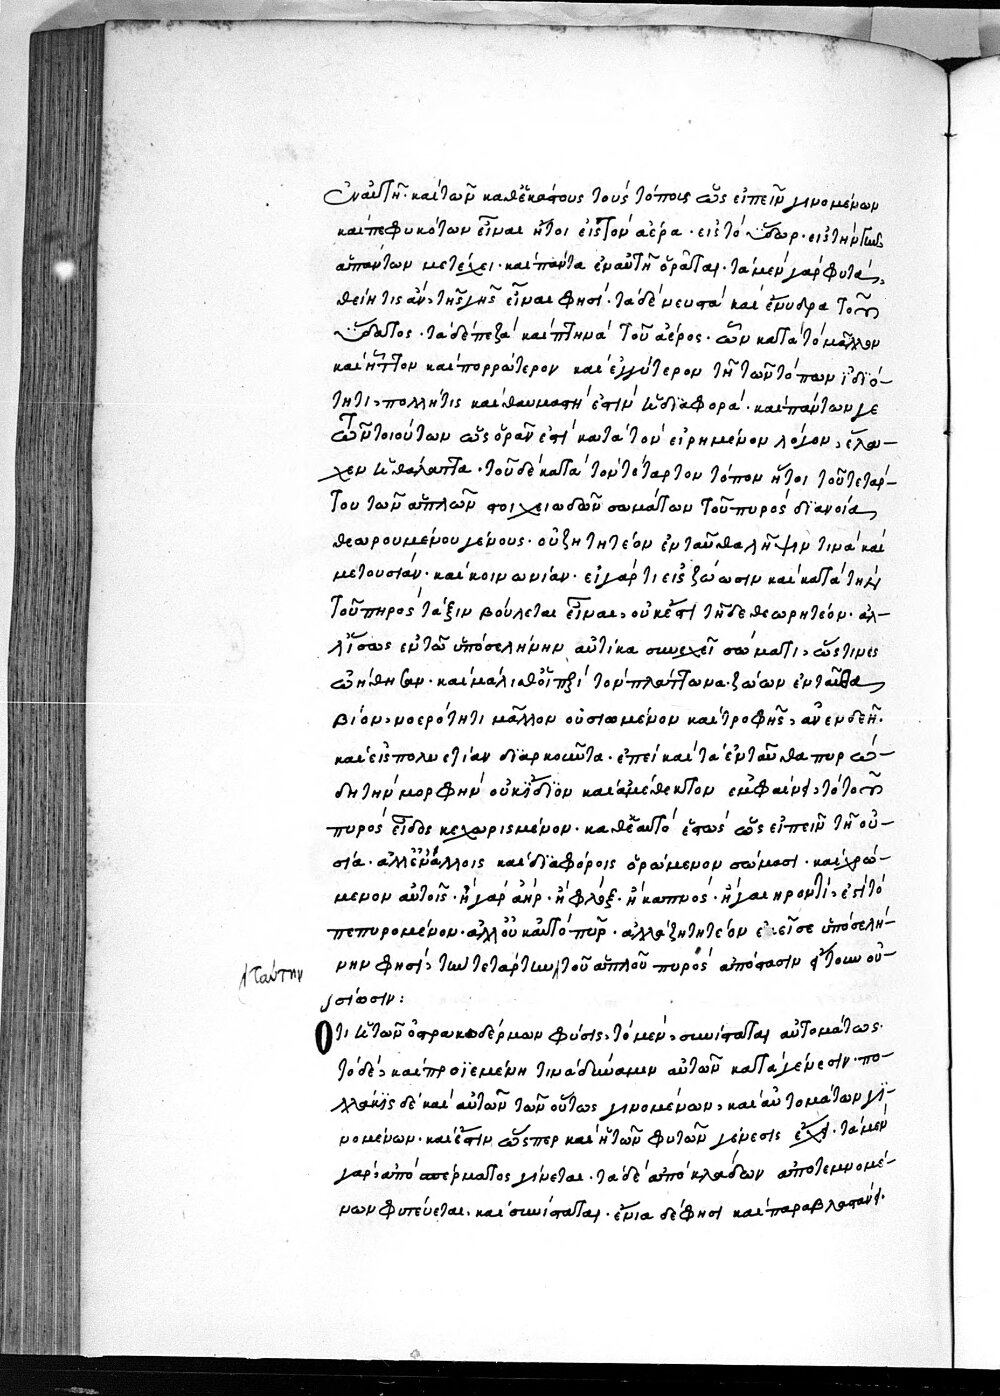 ἐν αὐτῇ· καὶ τῶν καθ' ἑκάστους τοὺς τόπους ὡς εἰπεῖν γινομένων
καὶ πεφυκότων εἶναι ἤτοι εἰς τὸν ἀέρα· εἰς τὸ ὕδωρ· εἰς τὴν γῆν
ἁπάντων μετέχει· καὶ πάντα ἐν αὐτῇ ὁρᾶται· τὰ μὲν γὰρ φυτὰ,
θείη τις ἂν, τῆς γῆς εἶναι φησί· τὰ δὲ νευστὰ καὶ ἔνυδρα τοῦ
ὕδατος· τὰ δὲ πεζὰ καὶ πτηνὰ τοῦ ἀέρος· ὧν κατὰ τὸ μᾶλλον
καὶ ἧττον καὶ πορρώτερον καὶ ἐγγύτερον τῇ τῶν τόπων ἰδιό-
τητι, πολλή τις καὶ θαυμαστή ἐστιν ἡ διαφορά· καὶ πάντων γε
τῶν τοιούτων ὡς ὁρᾶν ἐστὶ κατὰ τὸν εἰρημένον λόγον, ἔλα-
χεν ἡ θάλαττα· τοῦ δὲ κατὰ τὸν τέταρτον τόπον ἤτοι τοῦ τετάρ-
του τῶν ἁπλῶν στοιχειωδῶν σωμάτων τοῦ πυρὸς διανοία
θεωρουμένου γένους· οὐ ζητητέον ἐνταῦθα λῆψιν τινὰ καὶ
μετουσίαν· καὶ κοινωνίαν· εἰ γάρ τι εἰς ζώωσιν καὶ κατὰ τὴν
τοῦ πυρὸς τάξιν βούλεται εἶναι, οὐκ ἔστι τῇδε θεωρητέον· ἀλ-
λ' ἴσως ἐν τῶ ὑπὸ σελήνην αὐτίκα συνεχεῖ σώματι, ὥς τινες
ὠήθησαν· καὶ μάλισθ' οἱ περὶ τὸν πλάτωνα· ζώων ἐνταῦθα
βίον, νοερότητι μᾶλλον οὐσιωμένον καὶ τροφῆς, ἀνενδεῆ·
καὶ εἰς πολυετίαν διαρκοῦντα· ἐπεὶ καὶ τὰ ἐνταῦθα πυρώ-
δη τὴν μορφὴν οὐκ ἴδιον καὶ ἀμέθεκτον ἐμφαίνει, τὸ τοῦ
πυρὸς εἶδος κεχωρισμένον· καθ' ἑαυτὸ ἑστὼς ὡς εἰπεῖν τῇ οὐ-
σία· ἀλλ' ἐν ἄλλοις καὶ διαφόροις ὁρώμενον σώμασι· καὶ χρώ-
μενον αὐτοῖς· ἢ γὰρ ἀὴρ· ἢ φλὸξ· ἢ καπνὸς· ἢ γαιηρόν τι, ἐστὶ τὸ
πεπυρομένον· ἀλλ' οὐκ αὐτὸ πῦρ· ἀλλὰ ζητητέον ἐκεῖσε ὑπὸ σελή-
νην φησὶ, τὴν τετάρτην τοῦ ἁπλοῦ πυρὸς ἀπόστασιν ἤτοι οὐ-
σίωσιν:
ταύτην
Ὅτι ἡ τῶν ὀστρακοδέρμων φύσις, τὸ μὲν, συνίσταται αὐτομάτως·
τὸ δὲ, καὶ προϊεμένη τινὰ δύναμιν αὐτῶν κατὰ γένεσιν· πο-
λλάκις δὲ καὶ αὐτῶν τῶν οὕτως γινομένων, καὶ αὐτομάτων γι-
νομένων· καὶ ἔστιν ὥσπερ καὶ ἡ τῶν φυτῶν γένεσις ἔχει· τὰ μὲν
γὰρ, ἀπὸ σπέρματος γίνεται· τὰ δὲ ἀπὸ κλάδων ἀποτεμνομέ-
νων φυτεύεται· καὶ συνίσταται· ἔνια δὲ φησὶ καὶ παραβλαστάνει·